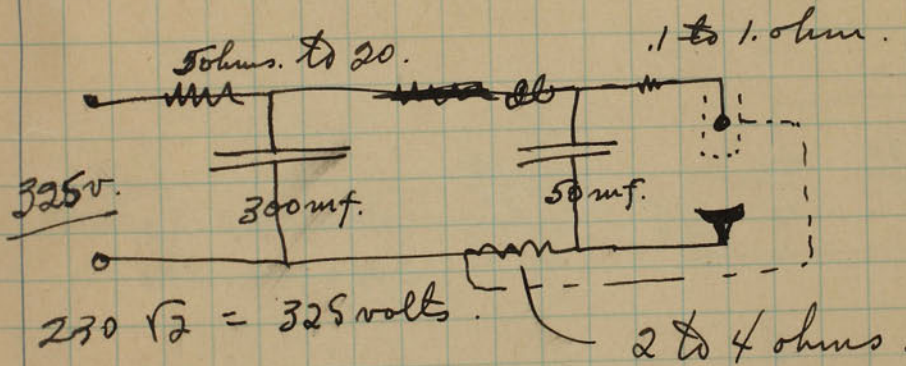 5 ohms. to 20.
.1 to 1. ohm.
325v.
300 mf.
50 mf.
230 √2 = 325 volts.
2 to 4 ohms.